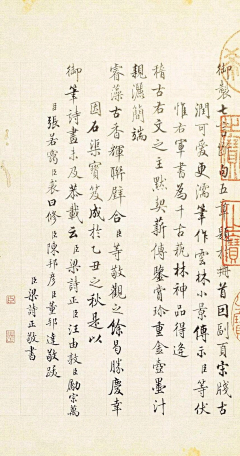 御製七言絕句五章題於冊首因副頁宋牋古
潤可愛更濡筆作雲林小景傳示臣等伏
惟右軍書為千古藝林神品得逢
稽古右文之主默契薪傳鑒賞珍重金壺墨汁
親灑簡端
睿藻古香輝聯璧合臣等敬觀之餘曷勝慶幸
因石渠寶笈成於乙丑之秋是以
御筆詩畫未及恭載云臣梁詩正臣汪由敦臣勵宗萬
臣張若靄臣裘曰修臣陳邦彥臣董邦達敬跋
臣梁詩正敬書